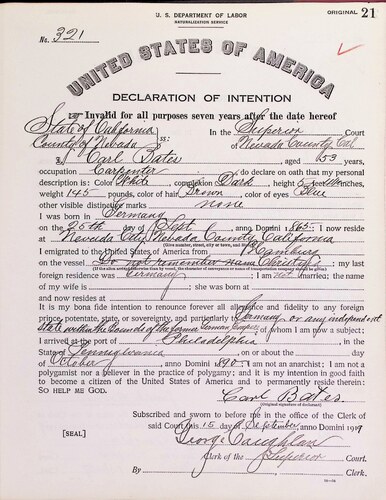 U. S. DEPARTMENT OF LABOR
NATURALIZATION SERVICE
ORIGINAL 21
No. 321
UNITED STATES OF AMERICA
DECLARATION OF INTENTION
Invalid for all purposes seven years after the date hereof
State of California
County of Nevada ss:
In the Superior Court
of Nevada County, Cal
I, Carl Bates, aged 53 years,
occupation Carpenter, do declare on oath that my personal
description is: Color White, complexion Dark, height 5 feet inches,
weight 145 pounds, color of hair Brown, color of eyes Blue
other visible distinctive marks none
I was born in Germany
on the 25th day of Sept, anno Domini 1865; I now reside
at Nevada City, Nevada County, California
I emigrated to the United States of America from Hamburg
on the vessel Do not remember name; my last
foreign residence was Germany; I am not married; the name
of my wife is; she was born at
and now resides at
It is my bona fide intention to renounce forever all allegiance and fidelity to any foreign
prince, potentate, state, or sovereignty, and particularly to Germany or any independent
State within the bounds of the former German Empire, of whom I am now a subject;
I arrived at the port of Philadelphia, in the
State of Pennsylvania, on or about the day
of October, anno Domini 1890; I am not an anarchist; I am not a
polygamist nor a believer in the practice of polygamy; and it is my intention in good faith
to become a citizen of the United States of America and to permanently reside therein:
SO HELP ME GOD.
Carl Bates
(Original signature of declarant)
Subscribed and sworn to before me in the office of the Clerk of
said Court this 15 day of September, anno Domini 1919
[SEAL]
George Coughlan
Clerk of the Superior Court.
By, Clerk.